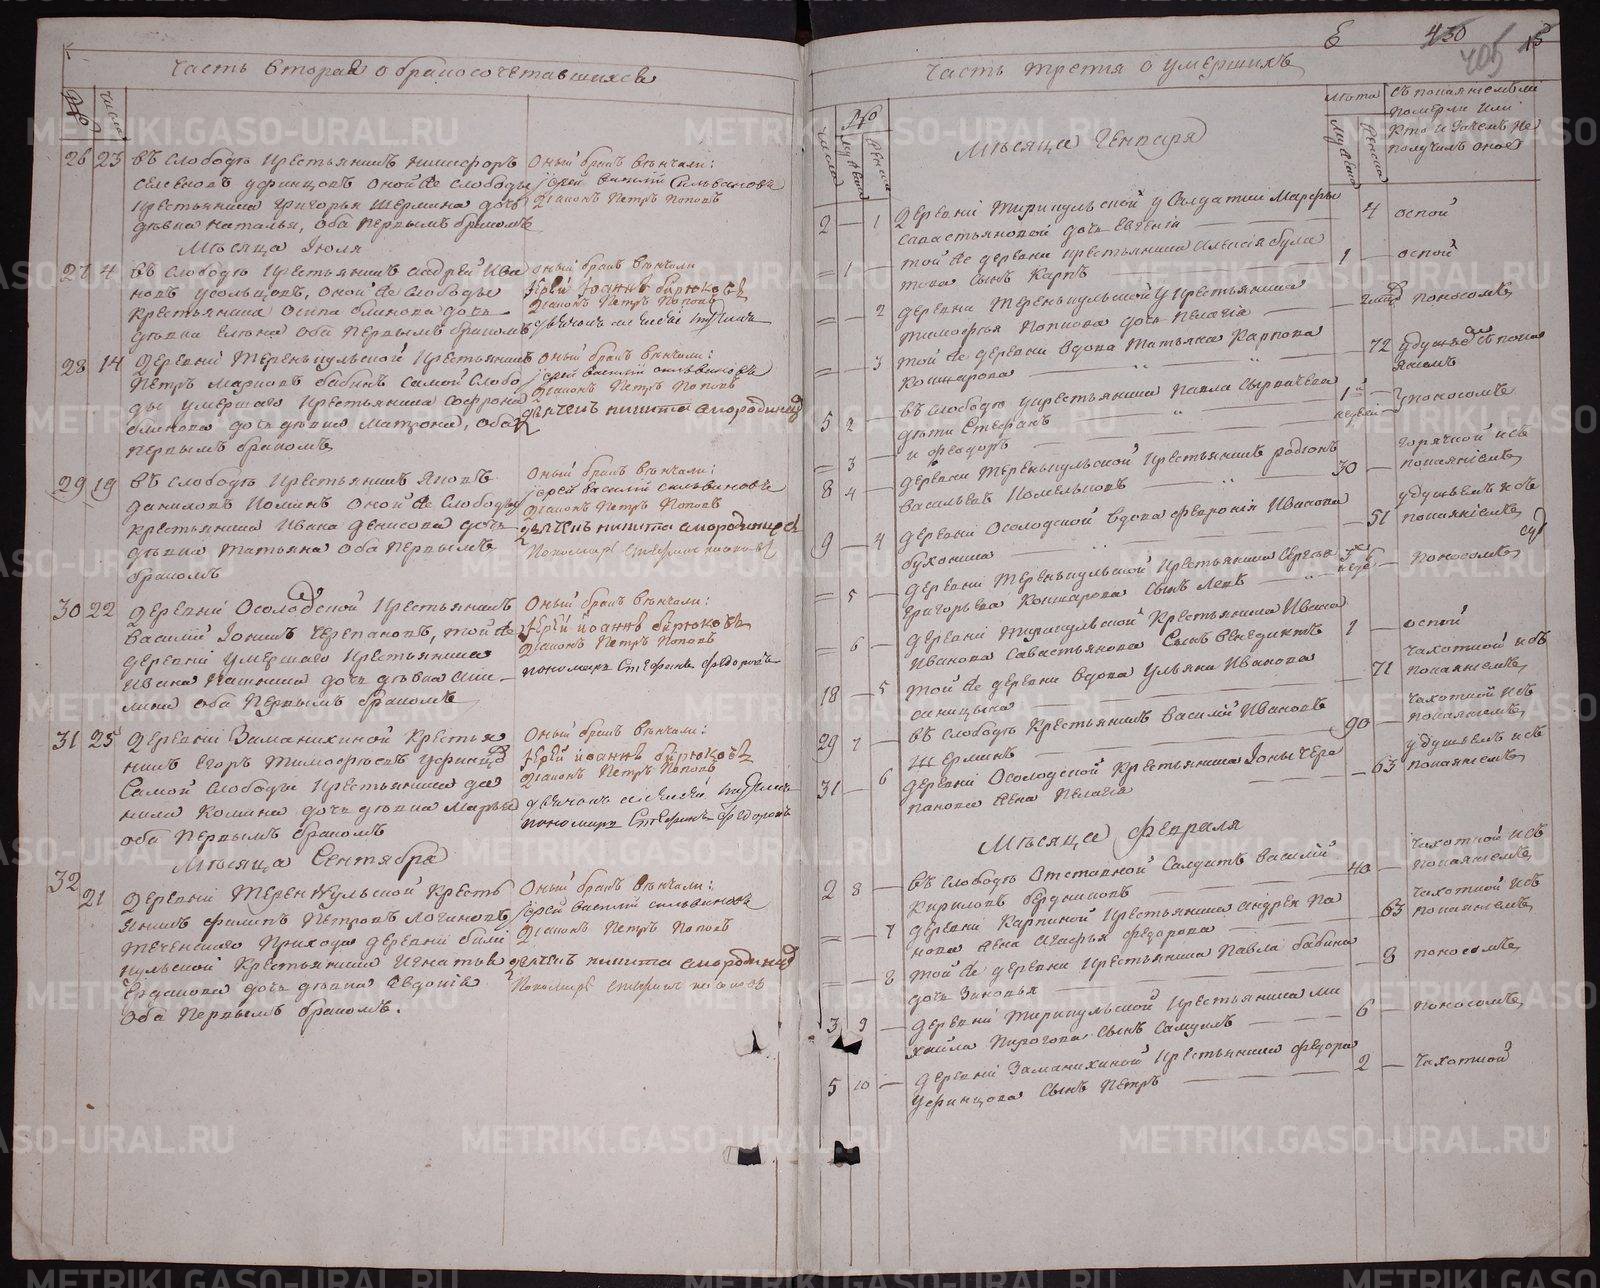 Часть вторая о бракосочетавшихся
№
число
26 23 Въ слободѣ крестьянинъ Никифоръ
Уфинцовъ оной же слободы
крестьянина Григорья Шермина дочь
дѣвка Наталья, оба первымъ бракомъ
Оный бракъ вѣнчали:
іерей Василій Сильвановъ
Діаконъ Петръ Поповъ
Мѣсяца Іюля
27 4 Въ слободѣ крестьянинъ Андрей Ива
новъ Усольцовъ, оной же слободы
крестьянина Осипа Блинова дочь
дѣвка Елена оба первымъ бракомъ
Оный бракъ вѣнчали
іерей Іоаннъ Бирюковъ
Діаконъ Петръ Поповъ
28 14 Деревни Теренькульской крестьянинъ
Петръ Марковъ Бабинъ самой слобо
ды умершаго крестьянина Софрона
Блинова дочь дѣвка Матрона, оба
первымъ бракомъ
Оный бракъ вѣнчали:
іерей Василій Сильвановъ
Діаконъ Петръ Поповъ
дьячекъ Никита Смородинцовъ
29 19 Въ слободѣ крестьянинъ Яковъ
Даниловъ Коминъ оной же слободы
крестьянина Ивана Денисова дочь
дѣвка Татьяна оба первымъ
бракомъ
Оный бракъ вѣнчали:
іерей Василій Сильвановъ
Діаконъ Петръ Поповъ
дьячекъ Никита Смородинцовъ
Пономарь Стефанъ
30 22 Деревни Осолодской крестьянинъ
Василій Іонинъ Черепановъ, той же
деревни умершаго крестьянина
Ивана Пашнина дочь дѣвка Аки-
лина оба первымъ бракомъ
Оный бракъ вѣнчали:
іерей Іоаннъ Бирюковъ
Діаконъ Петръ Поповъ
пономарь Стефанъ Федоровъ
31 25 Деревни Заманихиной крестья
нинъ Егоръ Тимофѣевъ Уфинцовъ
самой слободы крестьянина Да
нила Комина дочь дѣвка Марья
оба первымъ бракомъ
Оный бракъ вѣнчали:
іерей Іоаннъ Бирюковъ
Діаконъ Петръ Поповъ
пономарь Стефанъ Федоровъ
Мѣсяца Сентября
32 21 Деревни Теренкульской кресть
янинъ Филипъ Петровъ Логиновъ
Теченскаго прихода деревни Били
кульской крестьянина Игнатья
Ерданова дочь дѣвка Евдокія
оба первымъ бракомъ.
Оный бракъ вѣнчали:
іерей Василій Сильвановъ
Діаконъ Петръ Поповъ
дьячекъ Никита Смородинцовъ
Пономарь Стефанъ
430
405
15
Часть третья о умершихъ
число
№
мужеска
женска
лѣта
мужеска
женска
съ покаяніемъ ли
померли или
кто и зачемъ не
получилъ оное
Мѣсяца Генваря
2 — 1 Деревни Тирикульской у салдатки Марфы
Савастьяновой дочь Евгенія — 4 оспой
= 1 — той же деревни крестьянина Алексія Була
това сынъ Карпъ 1 — оспой
= 2 деревни Теренькульской у крестьянина
Тимофѣя Попкова дочь Пелагія — поносомъ
= 3 той же деревни вдова Татьяна Карпова
Коширова — 72 удушье съ покая
ніемъ
5 2 — въ слободѣ у крестьянина Павла Сырвачева
дѣти Стефанъ 1 — поносомъ
= 3 — и Феодоръ
8 4 — деревни Теренькульской крестьянинъ Родіонъ
Васильевъ 30 — горячкой и съ
покаяніемъ
9 — 4 деревни Осолодской вдова Февронія Иванова
Бухонина — 51 удушьемъ и съ
покаяніемъ
= 5 — деревни Теренькульской крестьянина Сергѣя
Григорьева Коширова сынъ Левъ — поносомъ
= 6 — деревни Тирикульской крестьянина Ивана
Иванова Савастьянова сынъ Венедиктъ 1 — оспой
18 — 5 той же деревни вдова Ульяна Иванова
Синицына — 71 чахоткой и съ
покаяніемъ
29 7 — въ слободѣ крестьянинъ Василій Ивановъ
Шерминъ 90 — чахоткой и съ
покаяніемъ
31 — 6 деревни Осолодской крестьянина Іоны Чере
панова жена Пелагія — 63 удушьемъ и съ
покаяніемъ
Мѣсяца Февраля
2 8 — въ слободѣ отставной салдатъ Василій
Кириловъ Бердниковъ 40 — чахоткой и съ
покаяніемъ
= — 7 деревни Карпиной крестьянина Андрея Па
нова жена Агафья Федорова — 63 чахоткой и съ
покаяніемъ
= — 8 той же деревни крестьянина Павла Бабина
дочь Зиновья — 8 поносомъ
3 9 — деревни Тирикульской крестьянина Ми
хайла Пирогова сынъ Самуилъ — 6 — поносомъ
5 10 — деревни Заманихиной крестьянина Федора
Уфинцова сынъ Петръ — 2 — чахоткой
METRIKI.GASO-URAL.RU